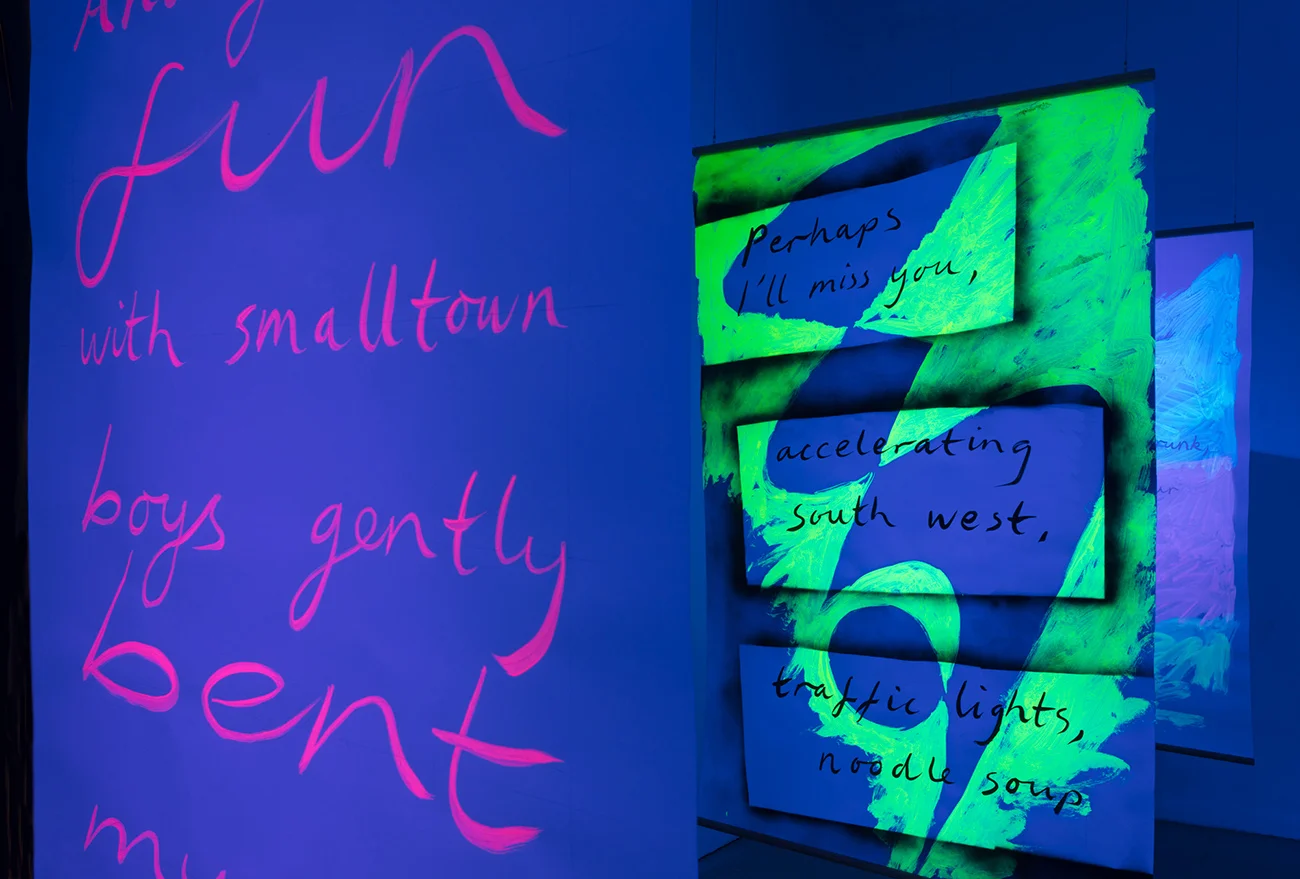 fun
with smalltown
boys gently
bent
my
Perhaps
I'll miss you,
accelerating
south west,
traffic lights,
noodle soup